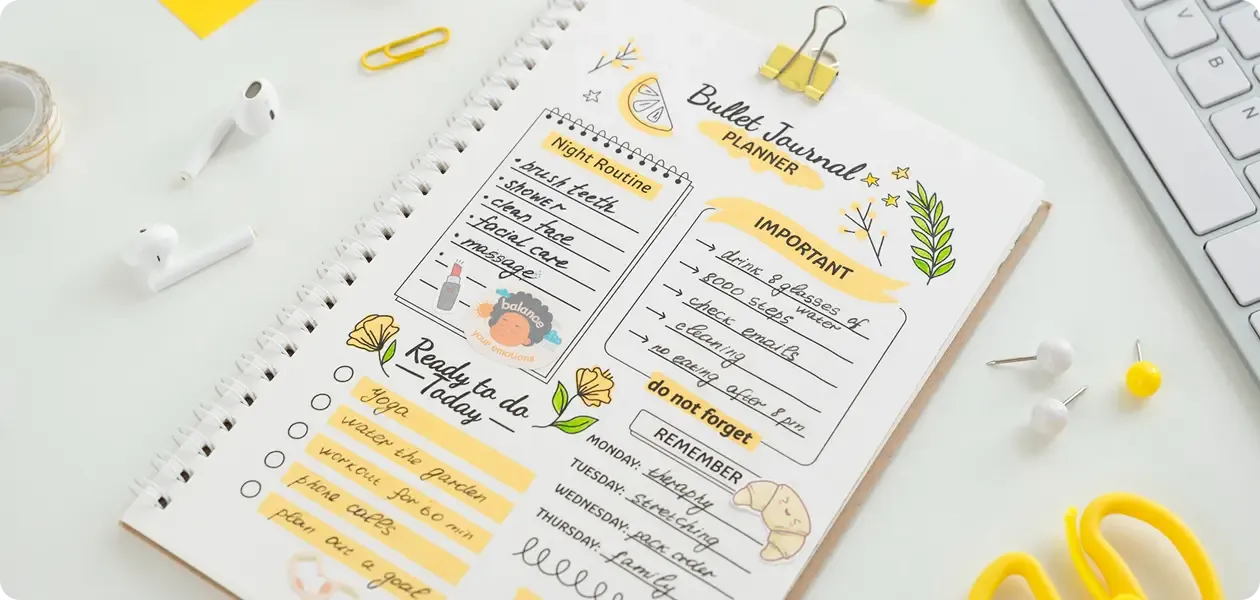 Bullet Journal
PLANNER
Night Routine
• brush teeth
• shower
• clean face
• facial care
• massage
•
balance
your emotions
IMPORTANT
→ drink 8 glasses of
water
→ 8000 steps
→ check emails
→ cleaning
→ no eating after 8 pm
Ready to do
Today
Yoga
water the garden
workout for 60 min
phone calls
plan out a goal
do not forget
REMEMBER
MONDAY: theraphy
TUESDAY: stretching
WEDNESDAY: pack order
THURSDAY: family
V
B
N